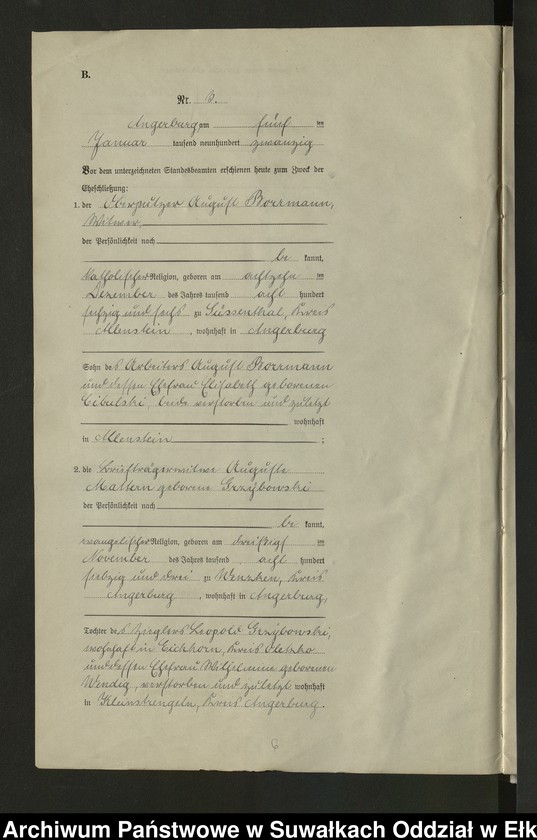 B.
Nr. 3.
Angerburg am fünf ten
Januar tausend neunhundert zwanzig
Vor dem unterzeichneten Standesbeamten erschienen heute zum Zweck der
Eheschließung:
1. der Oberputzer August Borrmann,
Witwer,
der Persönlichkeit nach
be kannt,
katholischer Religion, geboren am achtzehn ten
Dezember des Jahres tausend acht hundert
sechzig und sechs zu Süssenthal, Kreis
Allenstein, wohnhaft in Angerburg
Sohn des Arbeiters August Borrmann
und dessen Ehefrau Elisabeth geborenen
Cibulski, beide verstorben und zuletzt
wohnhaft
in Allenstein ;
2. die Briefträgerwitwe Auguste
Mattern geborene Grzybowski
der Persönlichkeit nach
be kannt,
evangelischer Religion, geboren am dreißigs ten
November des Jahres tausend acht hundert
siebzig und drei zu Wenzken, Kreis
Angerburg, wohnhaft in Angerburg,
Tochter des Zieglers Leopold Grzybowski,
wohnhaft in Eichhorn, Kreis Oletzko
und dessen Ehefrau Wilhelmine geborenen
Wendig, verstorben und zuletzt wohnhaft
in Kleinstrengeln, Kreis Angerburg.
6
Archiwum Państwowe w Suwałkach Oddział w Ełk